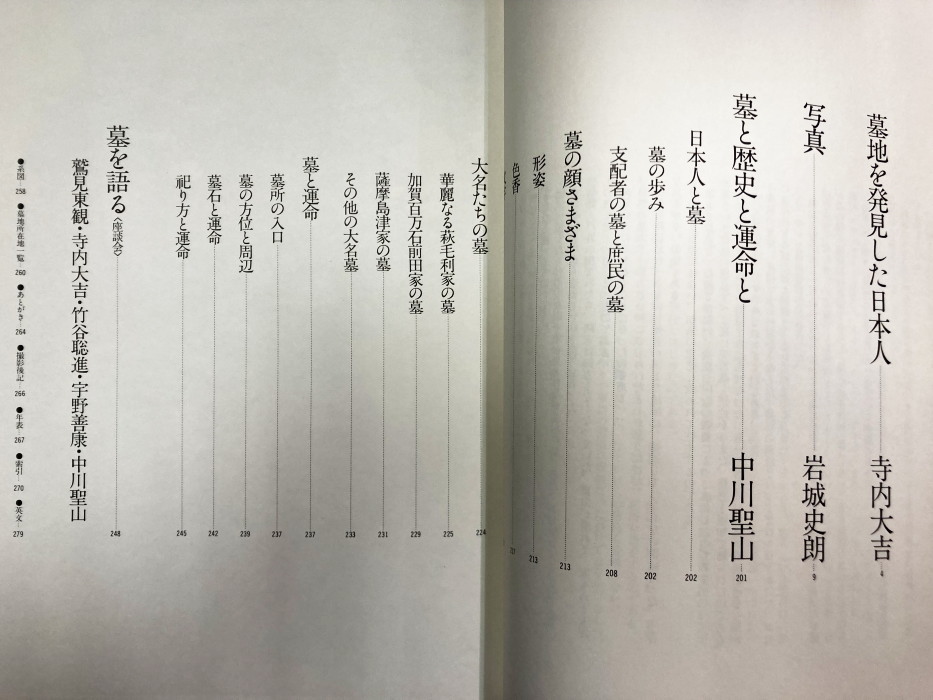 墓地を発見した日本人 寺内大吉 4
写真 岩城史朗 9
墓と歴史と運命と 中川聖山 201
日本人と墓 202
墓の歩み 202
支配者の墓と庶民の墓 208
墓の顔さまざま 213
形姿 213
色香
大名たちの墓 224
華麗なる萩毛利家の墓 225
加賀百万石前田家の墓 229
薩摩島津家の墓 231
その他の大名墓 233
墓と運命 237
墓所の入口 237
墓の方位と周辺 239
墓石と運命 242
祀り方と運命 245
墓を語る〈座談会〉 248
鷲見東観・寺内大吉・竹谷聡進・宇野善康・中川聖山
●系図 258 ●墓地所在地一覧 260 ●あとがき 264 ●撮影後記 266 ●年表 267 ●索引 270 ●英文 279